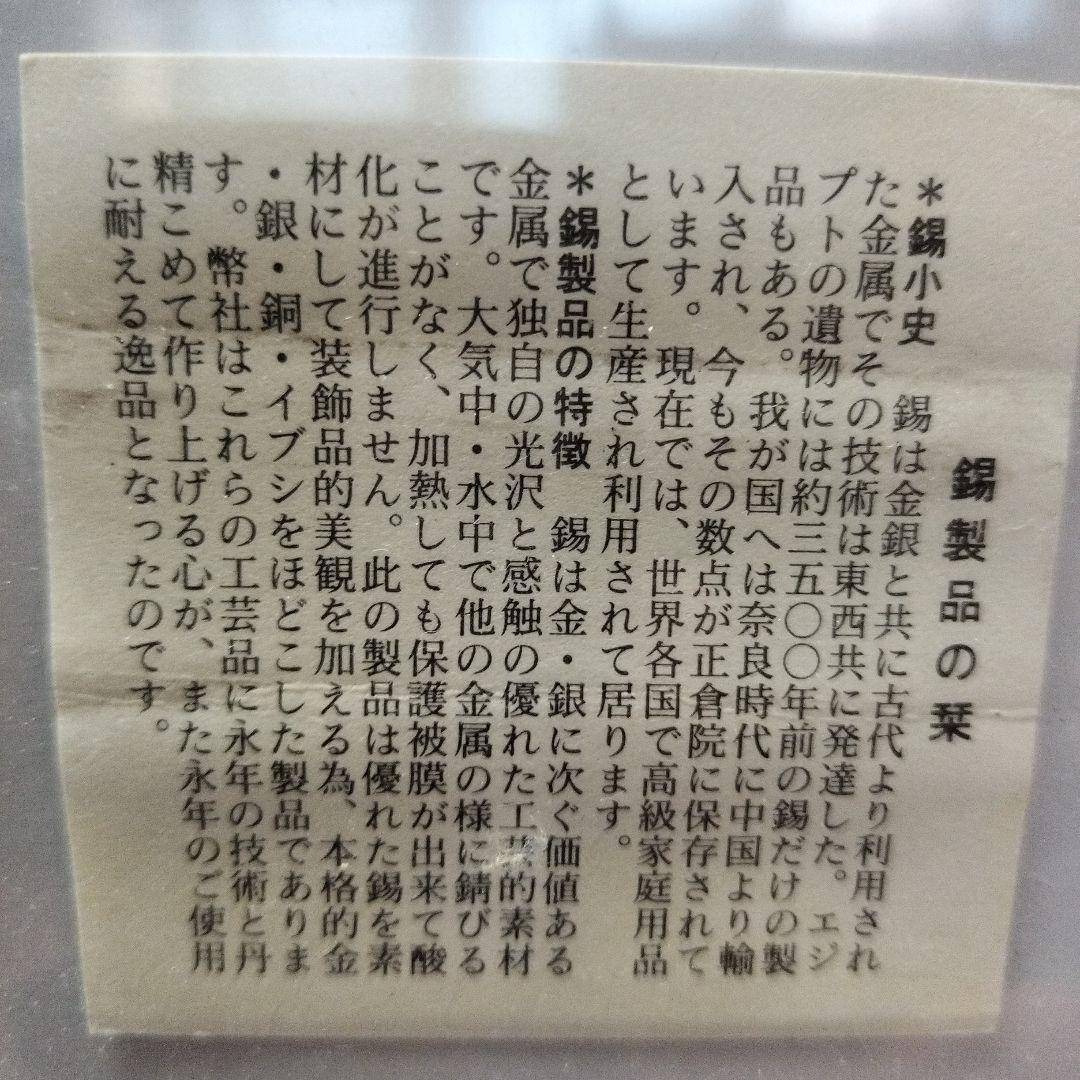 錫製品の栞
＊錫小史　錫は金銀と共に古代より利用され
た金属でその技術は東西共に発達した。エジ
プトの遺物には約三五〇〇年前の錫だけの製
品もある。我が国へは奈良時代に中国より輸
入され、今もその数点が正倉院に保存されて
います。現在では、世界各国で高級家庭用品
として生産され利用されて居ります。
＊錫製品の特徴　錫は金・銀に次ぐ価値ある
金属で独自の光沢と感触の優れた工芸的素材
です。大気中・水中で他の金属の様に錆びる
ことがなく、加熱しても保護被膜が出来て酸
化が進行しません。此の製品は優れた錫を素
材にして装飾品的美観を加える為、本格的金
・銀・銅・イブシをほどこした製品でありま
す。幣社はこれらの工芸品に永年の技術と丹
精こめて作り上げる心が、また永年のご使用
に耐える逸品となったのです。